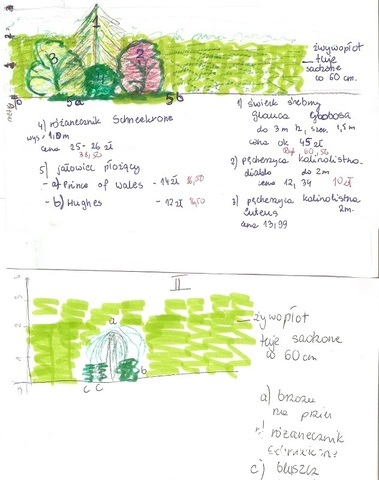 1
3
2
4
5a
5b
żywopłot
tuje
sadzone
co 60 cm.
4) różanecznik Schneekrone
wys = 1,0 m
cena 25 - 26 zł
5) jałowiec płożący
- a) Prince of Wales - 14 zł
- b) Hughes - 12 zł
1) świerk srebrny
glauca globosa
do 3 m h, szer. 1,5 m
cena ok 45 zł
2) pęcherznica kalinolistna
diablo do 2m
cena 12, 34 10 zł
3) pęcherznica kalinolistna
luteus 2m.
cena 13,99
II
a
b
c c
żywopłot
tuje sadzone
co 60 cm
a) brzoza
na pniu
różanecznik
c) bluszcz